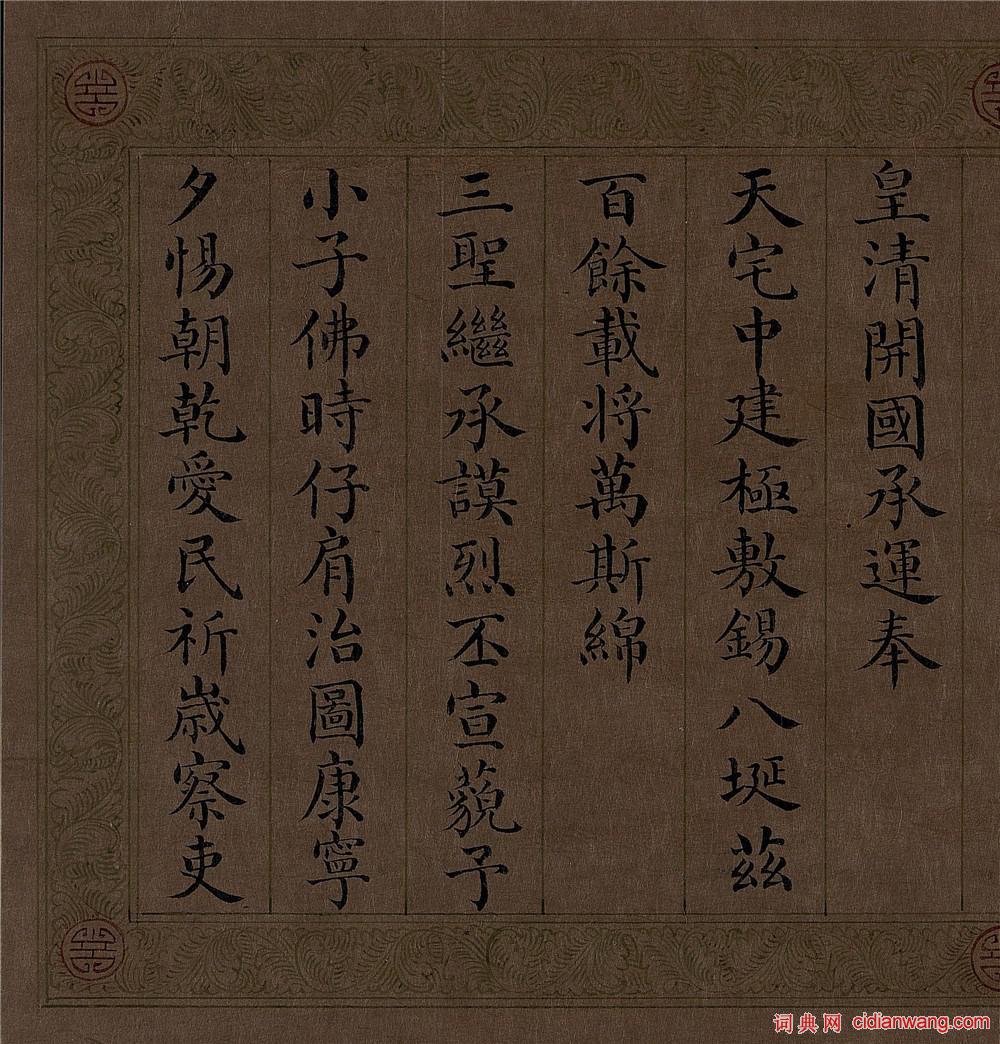 皇清開國承運奉
天宅中建極敷錫八埏茲
百餘載將萬斯綿
三聖繼承謨烈丕宣藐予
小子佛時仔肩治圖康寧
夕惕朝乾愛民祈歲察吏
词典网 cidianwang.com